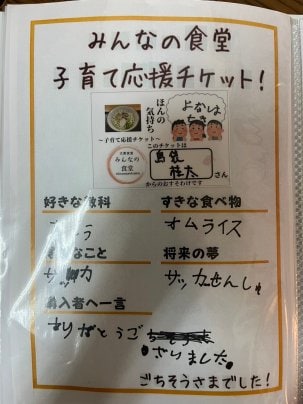 みんなの食堂
子育て応援チケット!
ほんの
気持ち
~子育て応援チケット~
このチケットは
みんなの
食堂
島袋
桂太
さん
からのおすそわけです
好きな教科
すきな食べ物
オムライス
なこと
将来の夢
サッカせんしゅ
入者へ一言
ありがとうご
ざいました。
ごちそうさまでした!